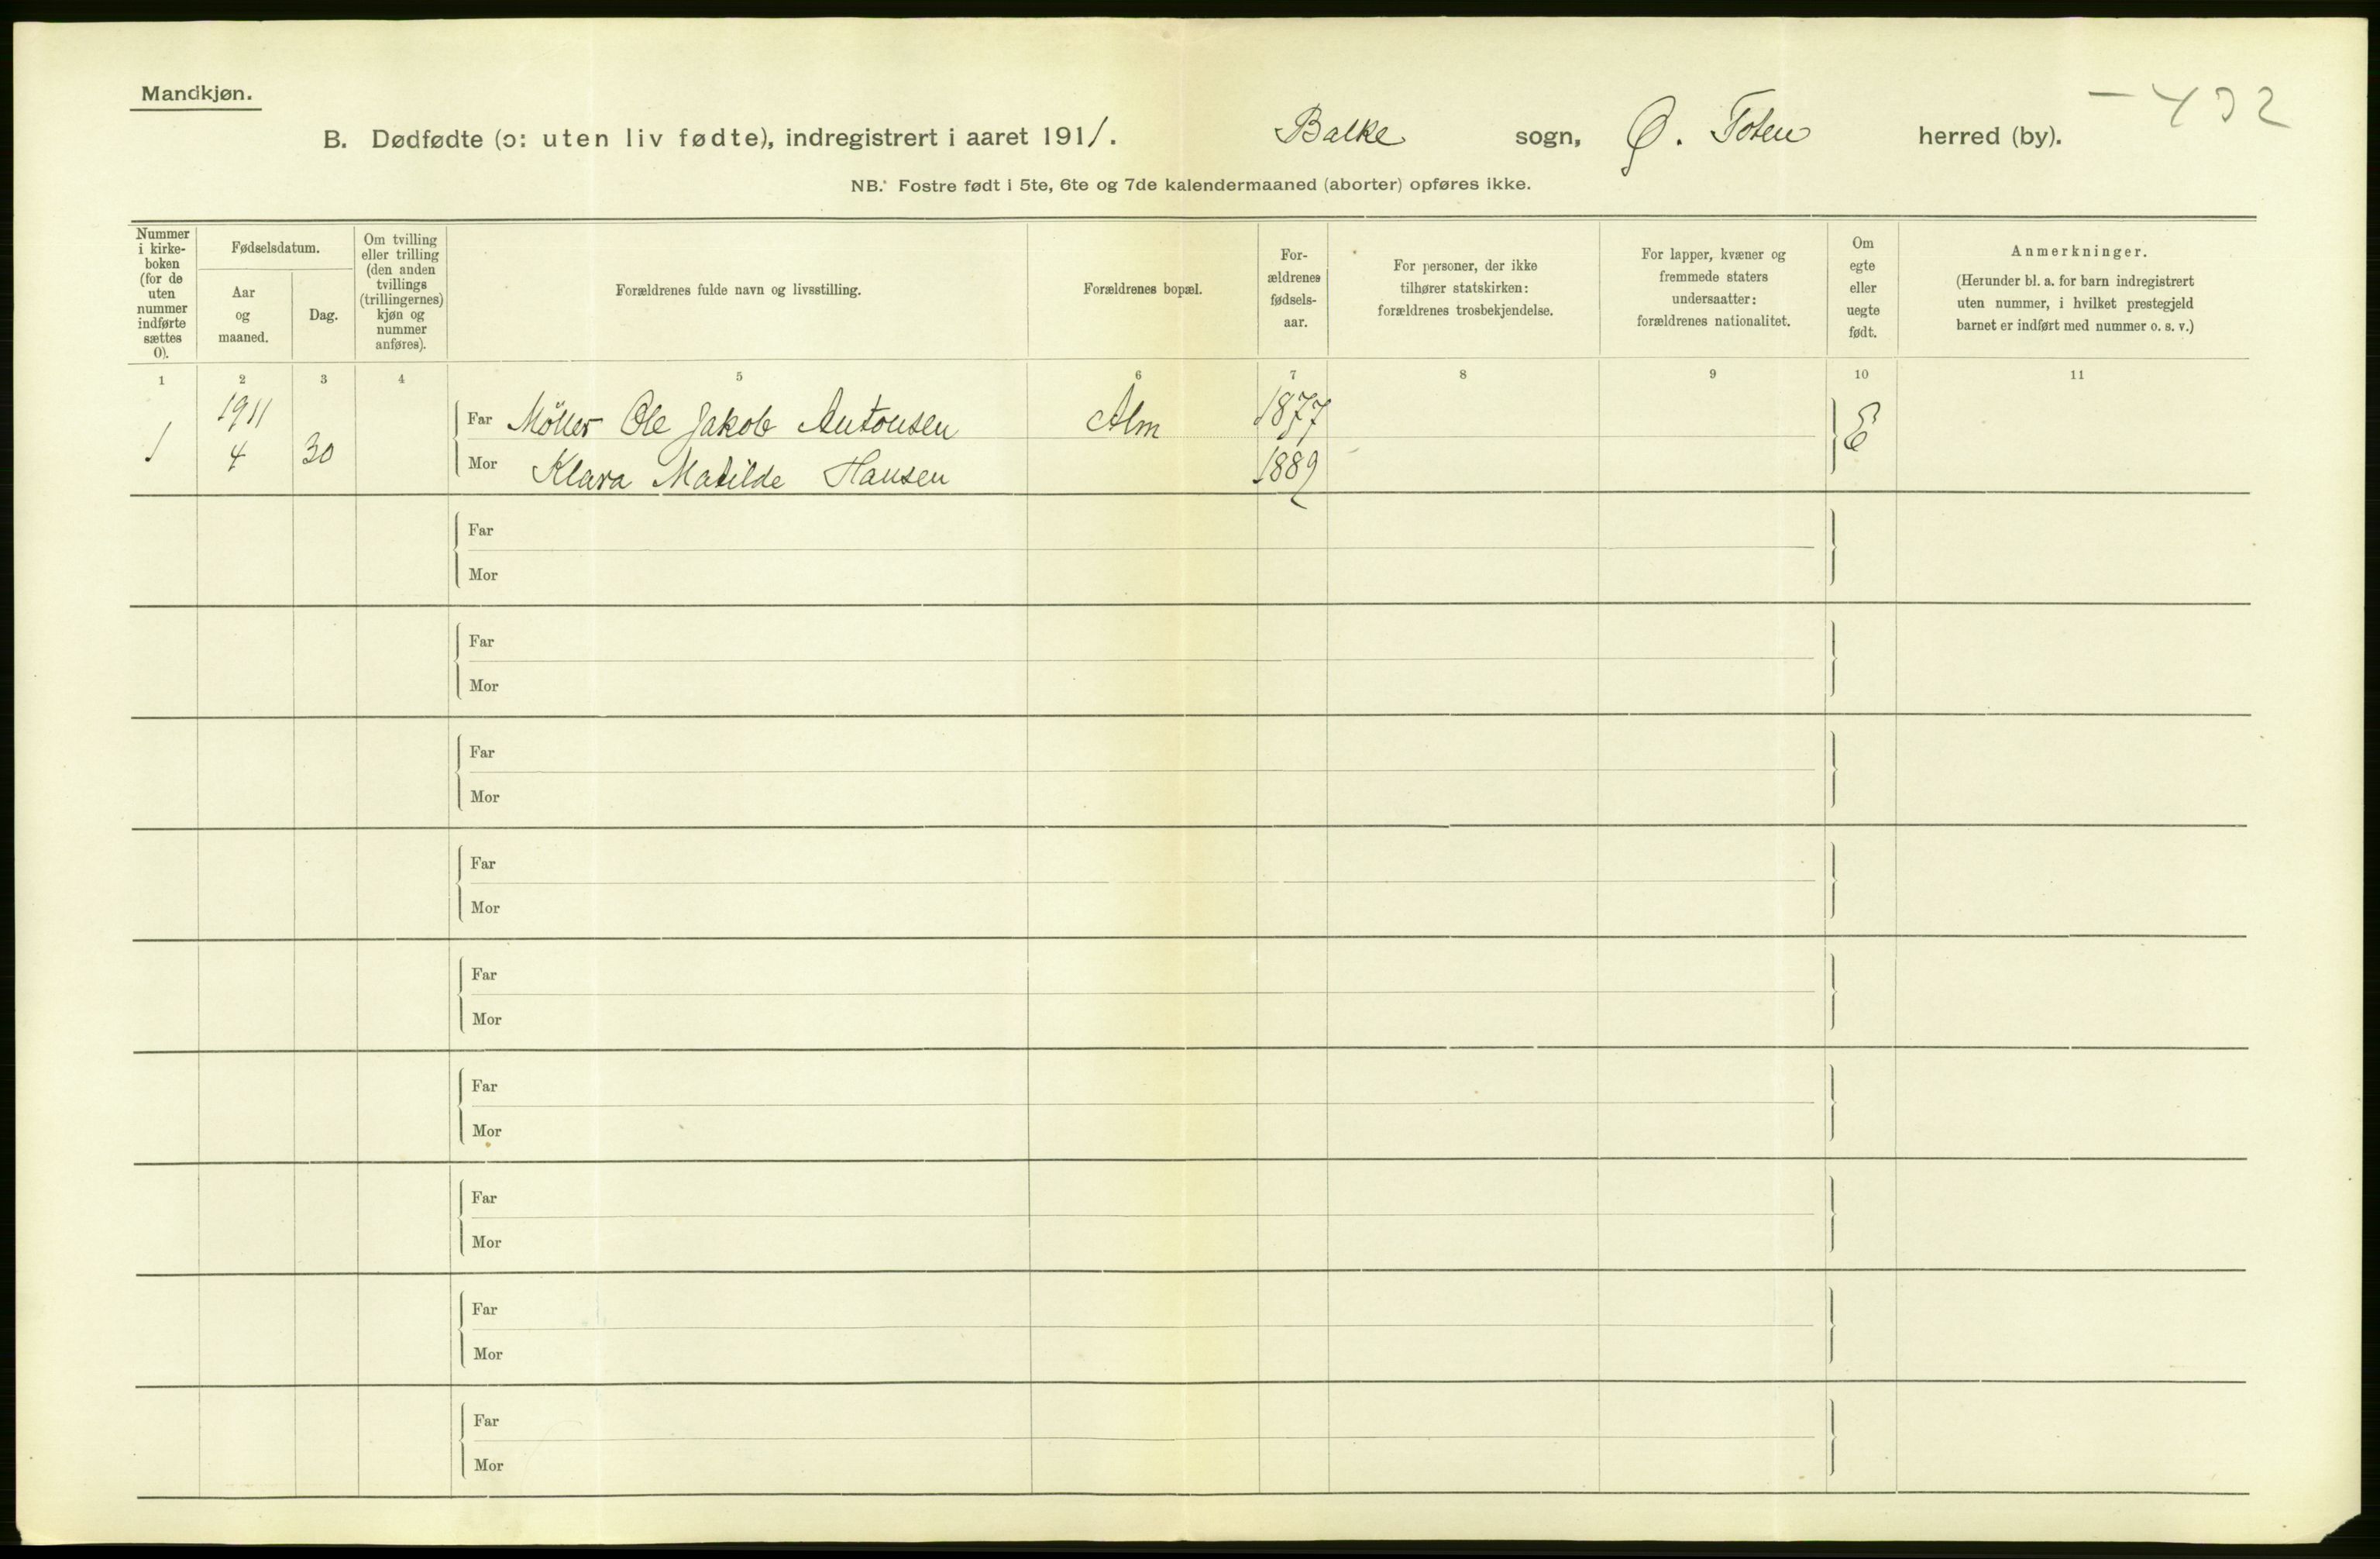 Mandkjøn.
B. Dødfødte (ɔ: uten liv fødte), indregistrert i aaret 1911. Balke sogn, Ø. Toten herred (by).
NB. Fostre født i 5te, 6te og 7de kalendermaaned (aborter) opføres ikke.
Nummer i kirke-boken (for de uten nummer indførte sættes 0).
Fødselsdatum.
Aar og maaned.
Dag.
Om tvilling eller trilling (den anden tvillings (trillingernes) kjøn og nummer anføres).
Forældrenes fulde navn og livsstilling.
Forældrenes bopæl.
For-ældrenes fødsels-aar.
For personer, der ikke tilhører statskirken: forældrenes trosbekjendelse.
For lapper, kvæner og fremmede staters undersaatter: forældrenes nationalitet.
Om egte eller uegte født.
Anmerkninger.
(Herunder bl. a. for barn indregistrert uten nummer, i hvilket prestegjeld barnet er indført med nummer o. s. v.)
1 2 3 4 5 6 7 8 9 10 11
1911
Far Möller Ole Jakob Antonsen Alm 1877 E
1 4 30
Mor Klara Matilde Hansen 1889
Far
Mor
Far
Mor
Far
Mor
Far
Mor
Far
Mor
Far
Mor
Far
Mor
Far
Mor
Far
Mor